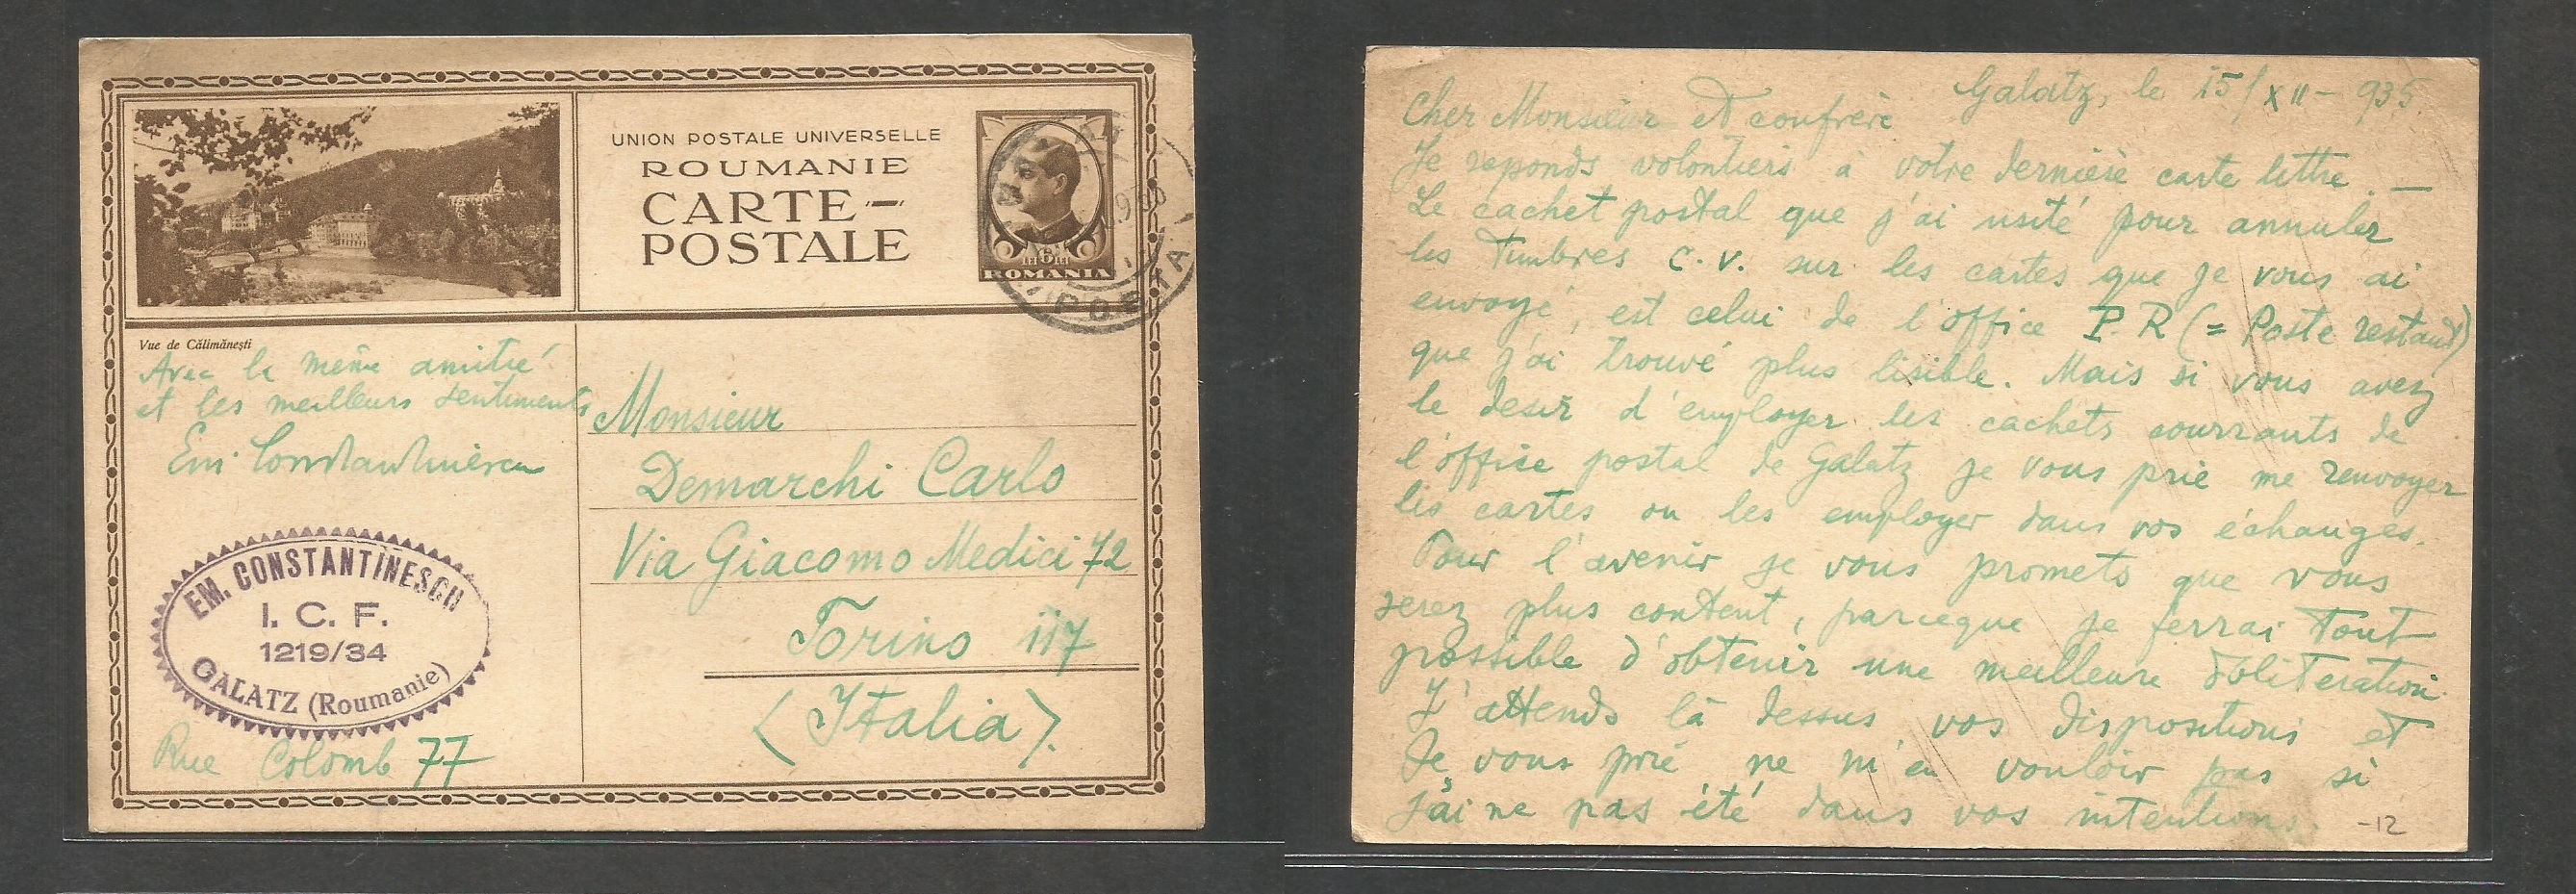 UNION POSTALE UNIVERSELLE
ROUMANIE
CARTE-
POSTALE
6
ROMANIA
POSTA
Vue de Călimănești
Avec la même amitié
et les meilleurs sentiments
Em. Constantinescu
EM. CONSTANTINESCU
I. C. F.
1219/34
GALATZ (Roumanie)
Rue Colomb 77
Monsieur
Demarchi Carlo
Via Giacomo Medici 72
Torino 117
(Italia).
Galatz, le 15/XII-935
Cher Monsieur et confrère
Je reponds volontiers à votre dernière carte lettre. —
Le cachet postal que j'ai usité pour annuler
les timbres c.v. sur les cartes que je vous ai
envoyé, est celui de l'office P.R (= Poste restant)
que j'ai trouvé plus lisible. Mais si vous avez
le desir d'employer les cachets courrants de
l'office postal de Galatz je vous prie me renvoyer
les cartes ou les employer dans vos échanges.
Pour l'avenir je vous promets que vous
serez plus content, parceque je ferrai tout
possible d'obtenir une meilleure obliteration.
J'attends là dessus vos dispositions et
Je vous prie ne m'en vouloir pas si
j'ai ne pas été dans vos intentions.
-12